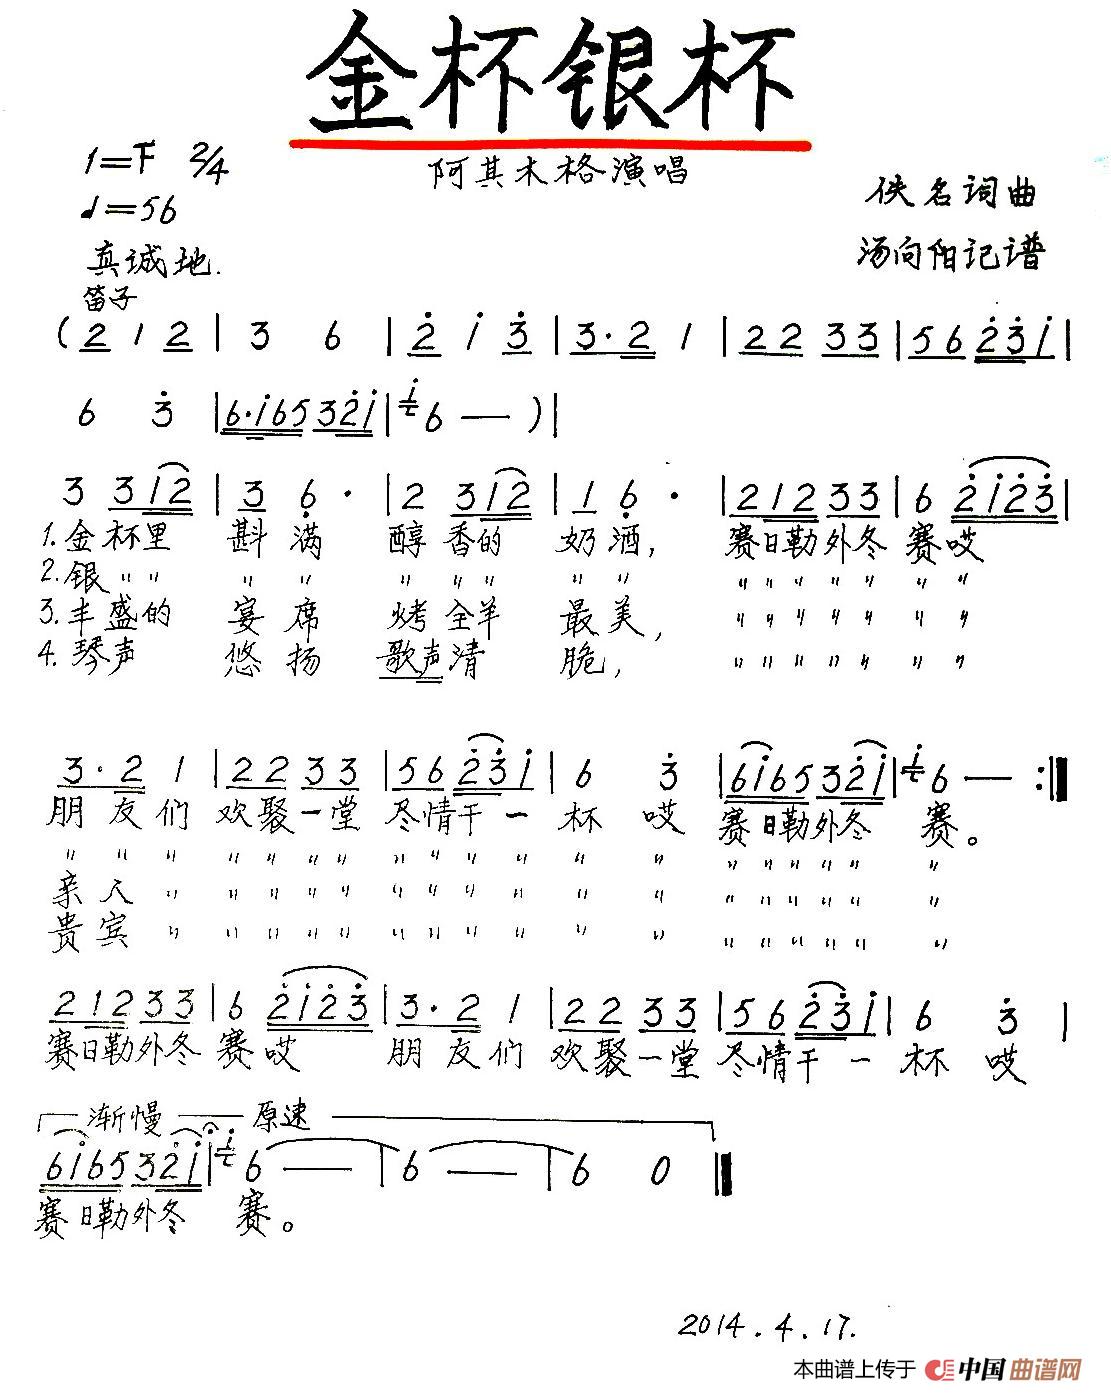 金杯银杯
1=F 2/4
阿其木格演唱
佚名词曲
♩=56
汤向阳记谱
真诚地.
笛子
(2 1 2 | 3 6 | 2 i 3 | 3·2 1 | 22 33 | 56 23i |
6 3 | 6·i65 32i | i 6 — ) |
3 312 | 3 6· | 2 312 | 1 6· | 212 33 | 6 2i23 |
1.金杯里 斟满 醇香的 奶酒, 赛日勒外冬 赛哎
2.银〃〃 〃〃 〃〃〃 〃〃 〃〃〃〃〃 〃〃
3.丰盛的 宴席 烤全羊 最美, 〃〃〃〃〃 〃〃
4.琴声 悠扬 歌声清 脆, 〃〃〃〃〃 〃〃
3·2 1 | 22 33 | 56 23i | 6 3 | 6i65 32i | i 6 — :‖
朋友们 欢聚一堂 尽情干一 杯 哎 赛日勒外冬 赛。
〃〃〃 〃〃〃〃 〃〃〃〃 〃 〃 〃〃〃〃〃 〃
亲人〃 〃〃〃〃 〃〃〃〃 〃 〃 〃〃〃〃〃 〃
贵宾〃 〃〃〃〃 〃〃〃〃 〃 〃 〃〃〃〃〃 〃
212 33 | 6 2i23 | 3·2 1 | 22 33 | 56 23i | 6 3 |
赛日勒外冬 赛哎 朋友们 欢聚一堂 尽情干一 杯 哎
渐慢 原速
6i65 32i | i 6 — | 6 — | 6 0 ‖
赛日勒外冬 赛。
2014.4.17.
本曲谱上传于 中国曲谱网